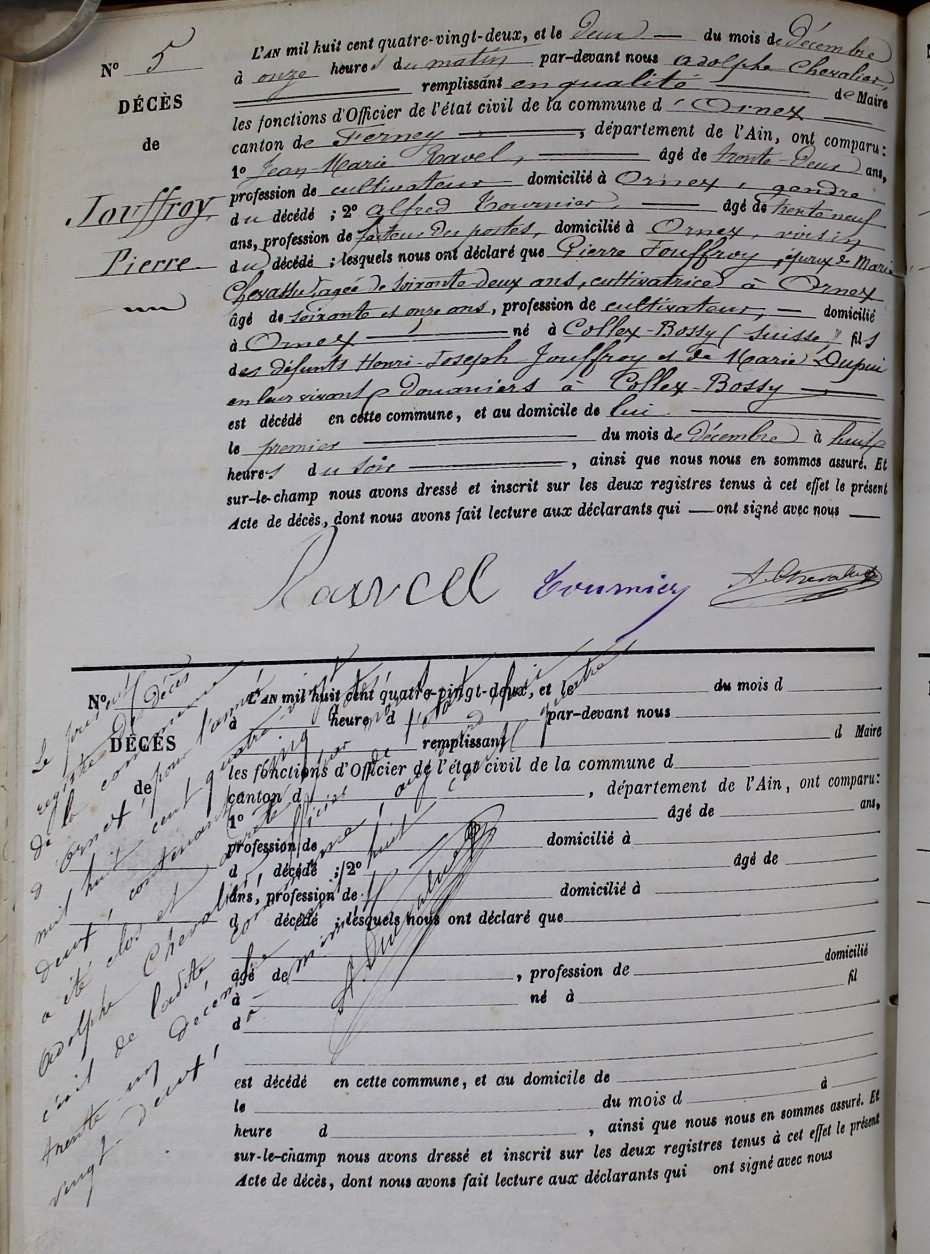 N° 5
DÉCÈS
de
Jouffroy
Pierre
L'AN mil huit cent quatre-vingt-deux, et le deux du mois de Décembre
à onze heures du matin par-devant nous Adolphe Chevalier,
remplissant en qualité de Maire
les fonctions d'Officier de l'état civil de la commune d'Ornex
canton de Ferney, département de l'Ain, ont comparu :
1° Jean-Marie Ravel, âgé de trente-deux ans,
profession de cultivateur domicilié à Ornex, gendre
du décédé ; 2° Alfred Tournier, âgé de trente neuf
ans, profession de facteur des postes, domicilié à Ornex, voisin
du décédé ; lesquels nous ont déclaré que Pierre Jouffroy, époux de Marie
Chevassu, agée de soixante-deux ans, cultivatrice à Ornex
âgé de soixante et onze ans, profession de cultivateur, domicilié
à Ornex né à Collex-Bossy (Suisse) fils
des défunts Henri-Joseph Jouffroy et de Marie Dupui
en leur vivant douaniers à Collex-Bossy
est décédé en cette commune, et au domicile de lui
le premier du mois de Décembre à huit
heures du soir, ainsi que nous nous en sommes assuré. Et
sur-le-champ nous avons dressé et inscrit sur les deux registres tenus à cet effet le présent
Acte de décès, dont nous avons fait lecture aux déclarants qui ont signé avec nous
Tournier A. Chevalier
N°
DÉCÈS
de
L'AN mil huit cent quatre-vingt-deux, et le du mois d
à heure d par-devant nous
remplissant d Maire
les fonctions d'Officier de l'état civil de la commune d
canton d , département de l'Ain, ont comparu :
1° âgé de ans,
profession de domicilié à
d décédé ; 2° âgé de
ans, profession de domicilié à
d décédé ; lesquels nous ont déclaré que
âgé de , profession de domicilié
à né à fil
d
est décédé en cette commune, et au domicile de
le du mois d à
heure d , ainsi que nous nous en sommes assuré. Et
sur-le-champ nous avons dressé et inscrit sur les deux registres tenus à cet effet le présent
Acte de décès, dont nous avons fait lecture aux déclarants qui ont signé avec nous
Le présent
registre de Décès
de la commune
d'Ornex, pour l'année
mil huit cent quatre vingt
deux, contenant cinq
a été clos et arrêté par nous
Adolphe Chevalier, officier de l'état
civil de ladite commune, aujourd'hui
trente un décembre mil huit cent quatre
vingt-deux, à minuit
A. Chevalier